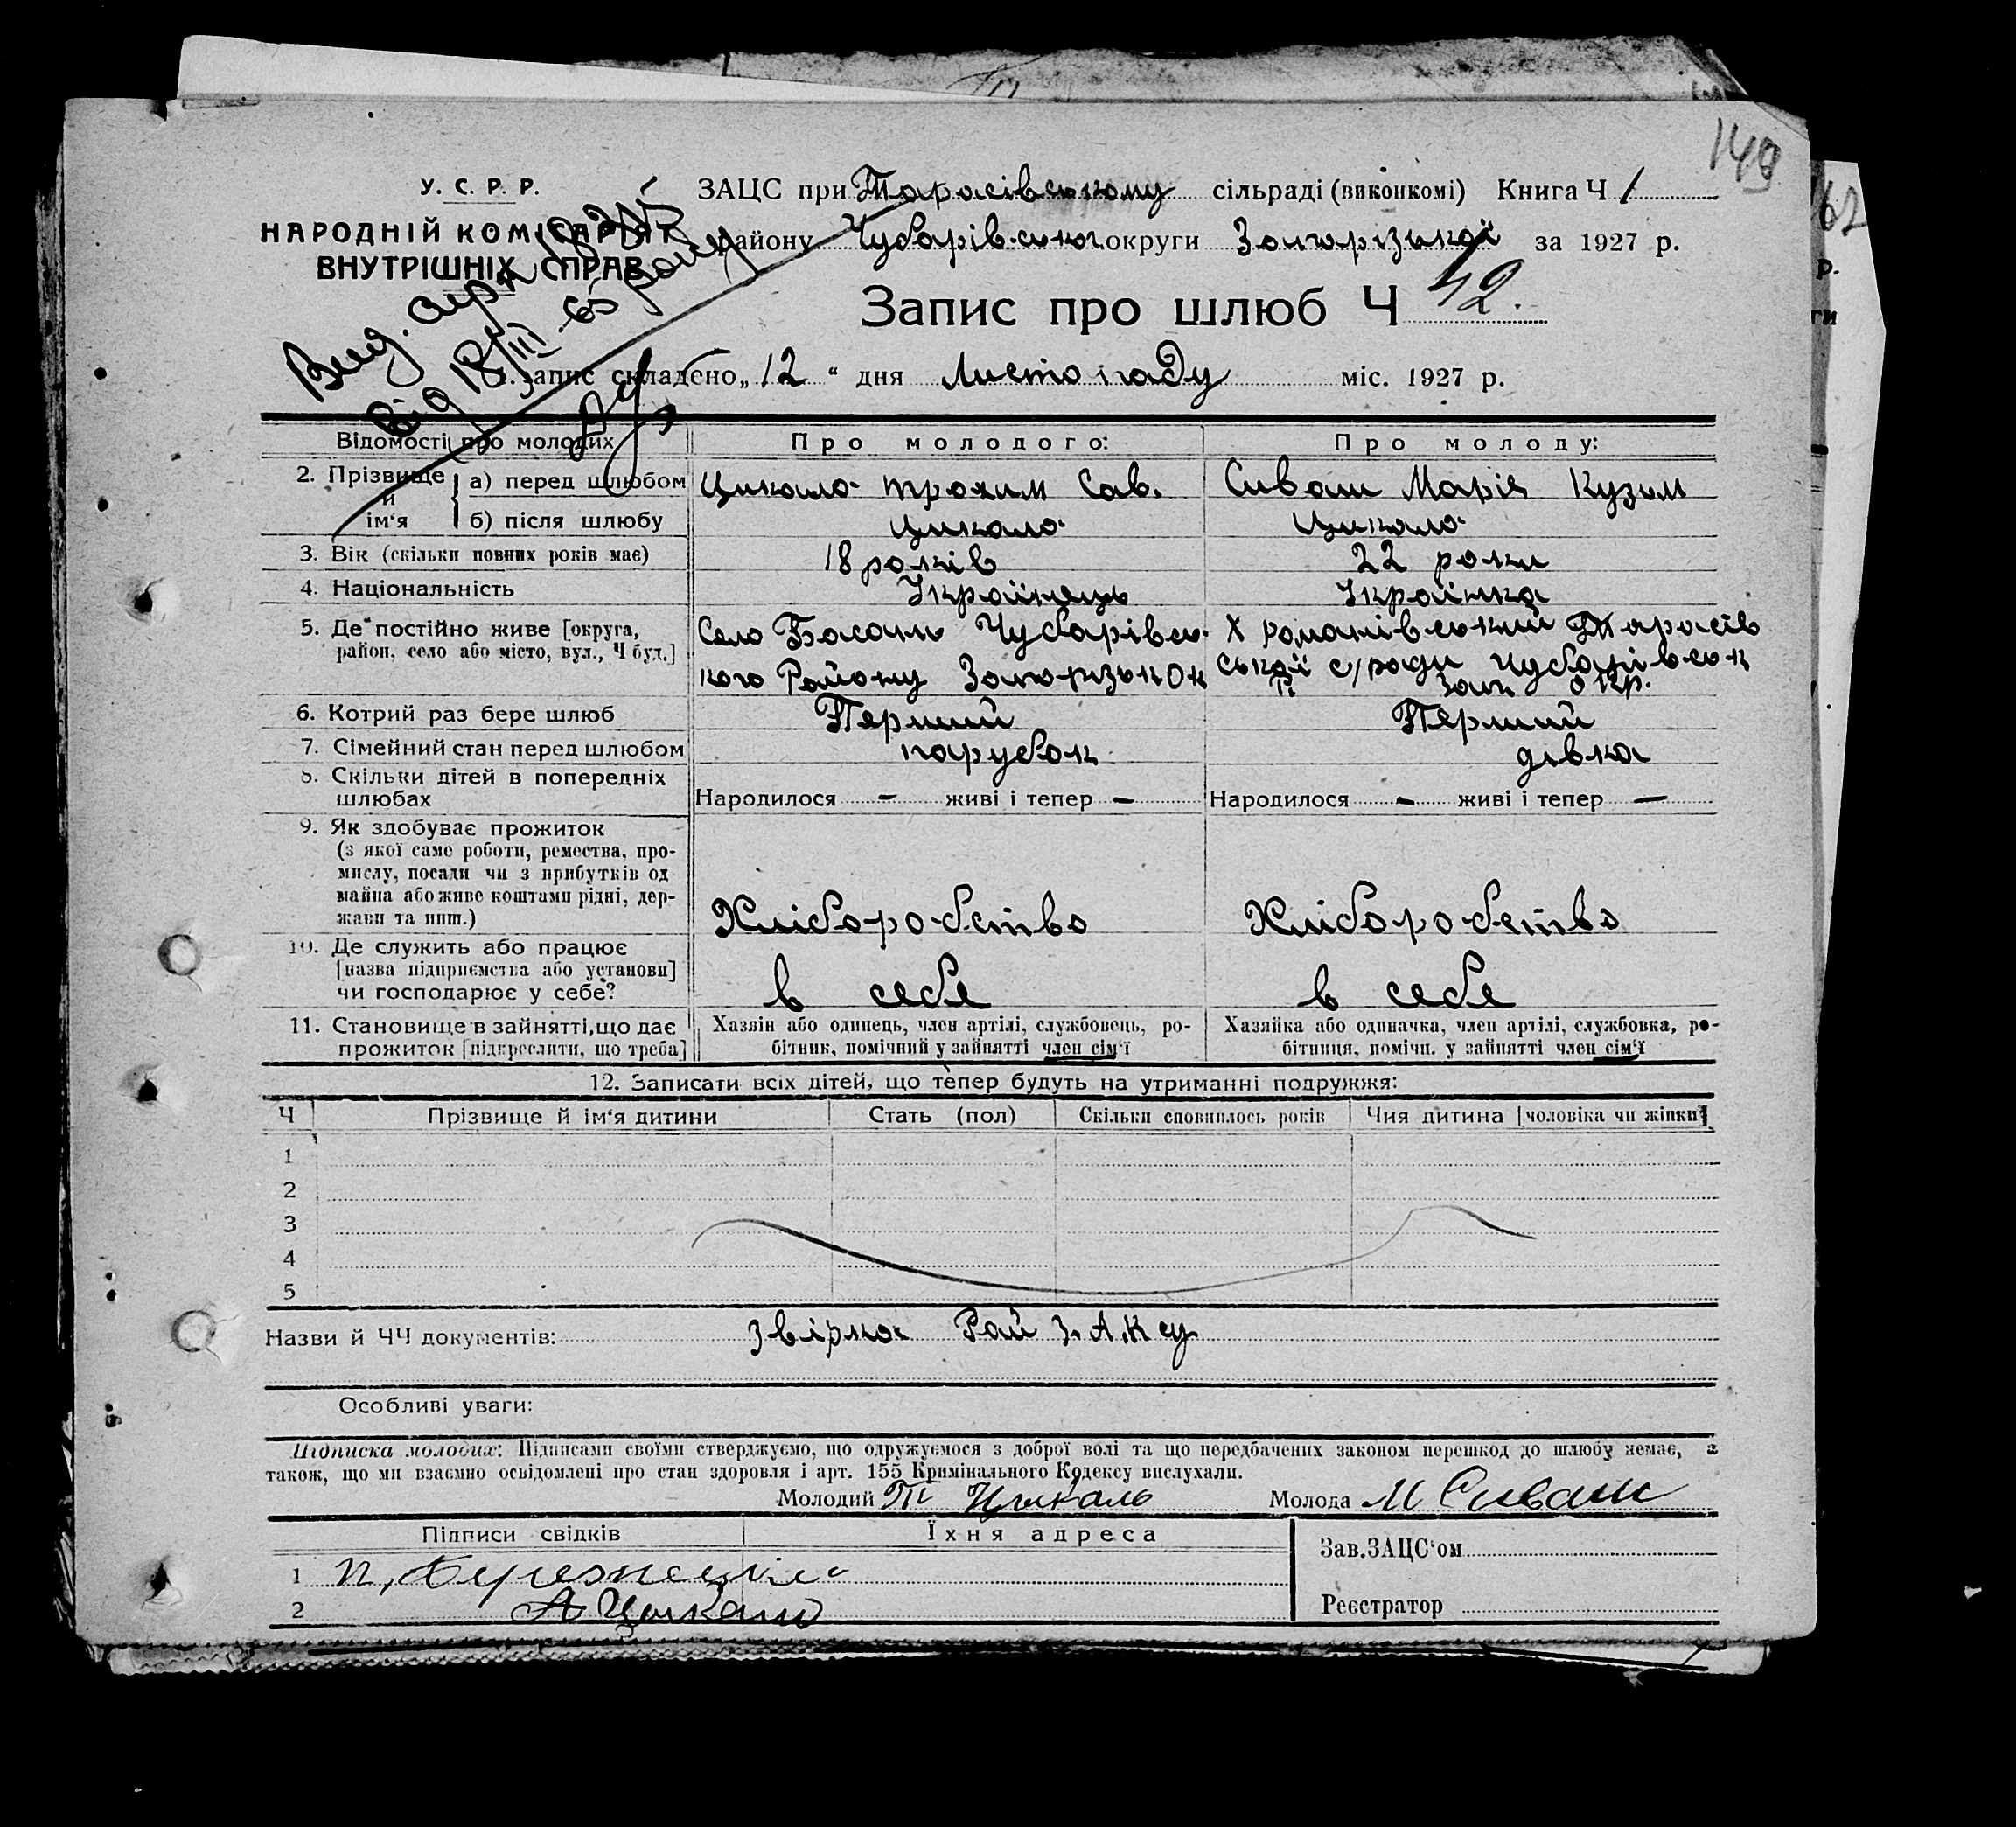 149
У. С. Р. Р.
НАРОДНІЙ КОМІСАРІЯТ
ВНУТРІШНІХ СПРАВ
ЗАЦС при Тарасівському сільраді (виконкомі) Книга Ч 1
району Чубарівськ округи Запорізької за 1927 р.
Запис про шлюб Ч 42.
Вид.
від 18/III 65 року
1. Запис складено „12“ дня Листопаду міс. 1927 р.
Відомості про молодих
Про молодого:
Про молоду:
2. Прізвище й ім'я
а) перед шлюбом
Цикало Трохим Сав.
Сиваш Марія Кузьм
б) після шлюбу
Цикало
Цикало
3. Вік (скільки повних років має)
18 років
22 роки
4. Національність
Українець
Українка
5. Де постійно живе [округа,
район, село або місто, вул., Ч буд.]
Село Басань Чубарівсь-
кого Району Запоризьк Ок
Х Романівський Тарасів
ської с/ради Чубарівськ
Зап Окр.
6. Котрий раз бере шлюб
Перший
Перший
7. Сімейний стан перед шлюбом
парубок
дівка
8. Скільки дітей в попередніх
шлюбах
Народилося - живі і тепер -
Народилося - живі і тепер —
9. Як здобуває прожиток
(з якої саме роботи, ремества, про-
мислу, посади чи з прибутків од
майна або живе коштами рідні, дер-
жави та инш.)
Хліборобство
Хліборобство
10. Де служить або працює
[назва підприємства або установи]
чи господарює у себе?
в себе
в себе
11. Становище в зайнятті, що дає
прожиток [підкреслити, що треба]
Хазяїн або одинець, член артілі, службовець, ро-
бітник, помічний у зайнятті член сім'ї
Хазяйка або одиначка, член артілі, службовка, ро-
бітниця, помічн. у зайнятті член сім'ї
12. Записати всіх дітей, що тепер будуть на утриманні подружжя:
Ч Прізвище й ім'я дитини Стать (пол) Скільки сповнилось років Чия дитина [чоловіка чи жінки]
1
2
3
4
5
Назви й ЧЧ документів: Звірка Рай З.А.Ксу
Особливі уваги:
Підписка молодих: Підписами своїми стверджуємо, що одружуємося з доброї волі та що передбачених законом перешкод до шлюбу немає, а
також, що ми взаємно освідомлені про стан здоровля і арт. 155 Кримінального Кодексу вислухали.
Молодий Т Цыкаль Молода М Сиваш
Підписи свідків Їхня адреса
1 П,
2 А Цыкало
Зав. ЗАЦС'ом
Реєстратор
62
р.
ги